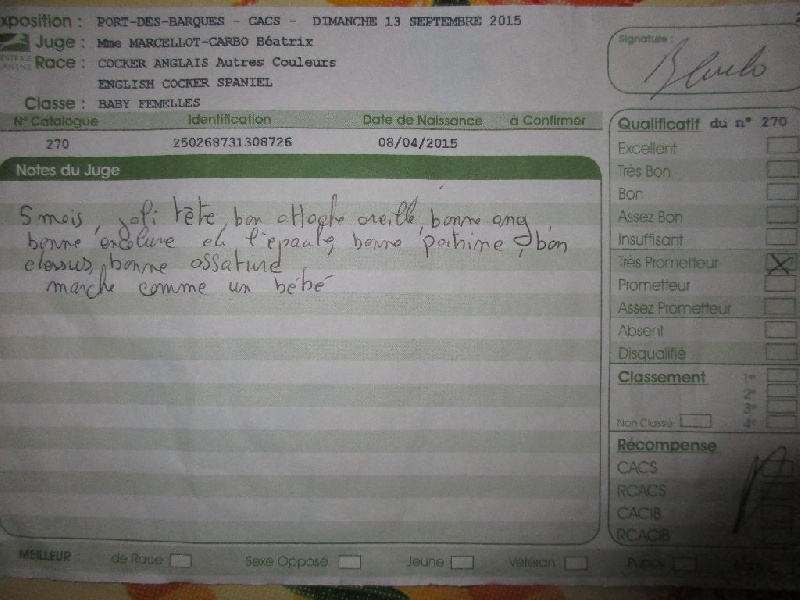 xposition : PORT-DES-BARQUES - CACS - DIMANCHE 13 SEPTEMBRE 2015
Juge : Mme MARCELLOT-CARBO Béatrix
Race : COCKER ANGLAIS Autres Couleurs
ENGLISH COCKER SPANIEL
Classe : BABY FEMELLES
Signature :
N° Catalogue Identification Date de Naissance à Confirmer
270 250268731308726 08/04/2015
Notes du Juge
5 mois, joli tête, bon attache oreille, bonne ang
bonne encolure et l'epaule, bonne poitrine, bon
dessus, bonne ossature
marche comme un bébé
Qualificatif du n° 270
Excellent
Très Bon
Bon
Assez Bon
Insuffisant
Très Prometteur X
Prometteur
Assez Prometteur
Absent
Disqualifié
Classement 1er
2e
3e
Non Classé 4e
Récompense
CACS
RCACS
CACIB
RCACIB
MEILLEUR : de Race Sexe Opposé Jeune Vétéran Puppy